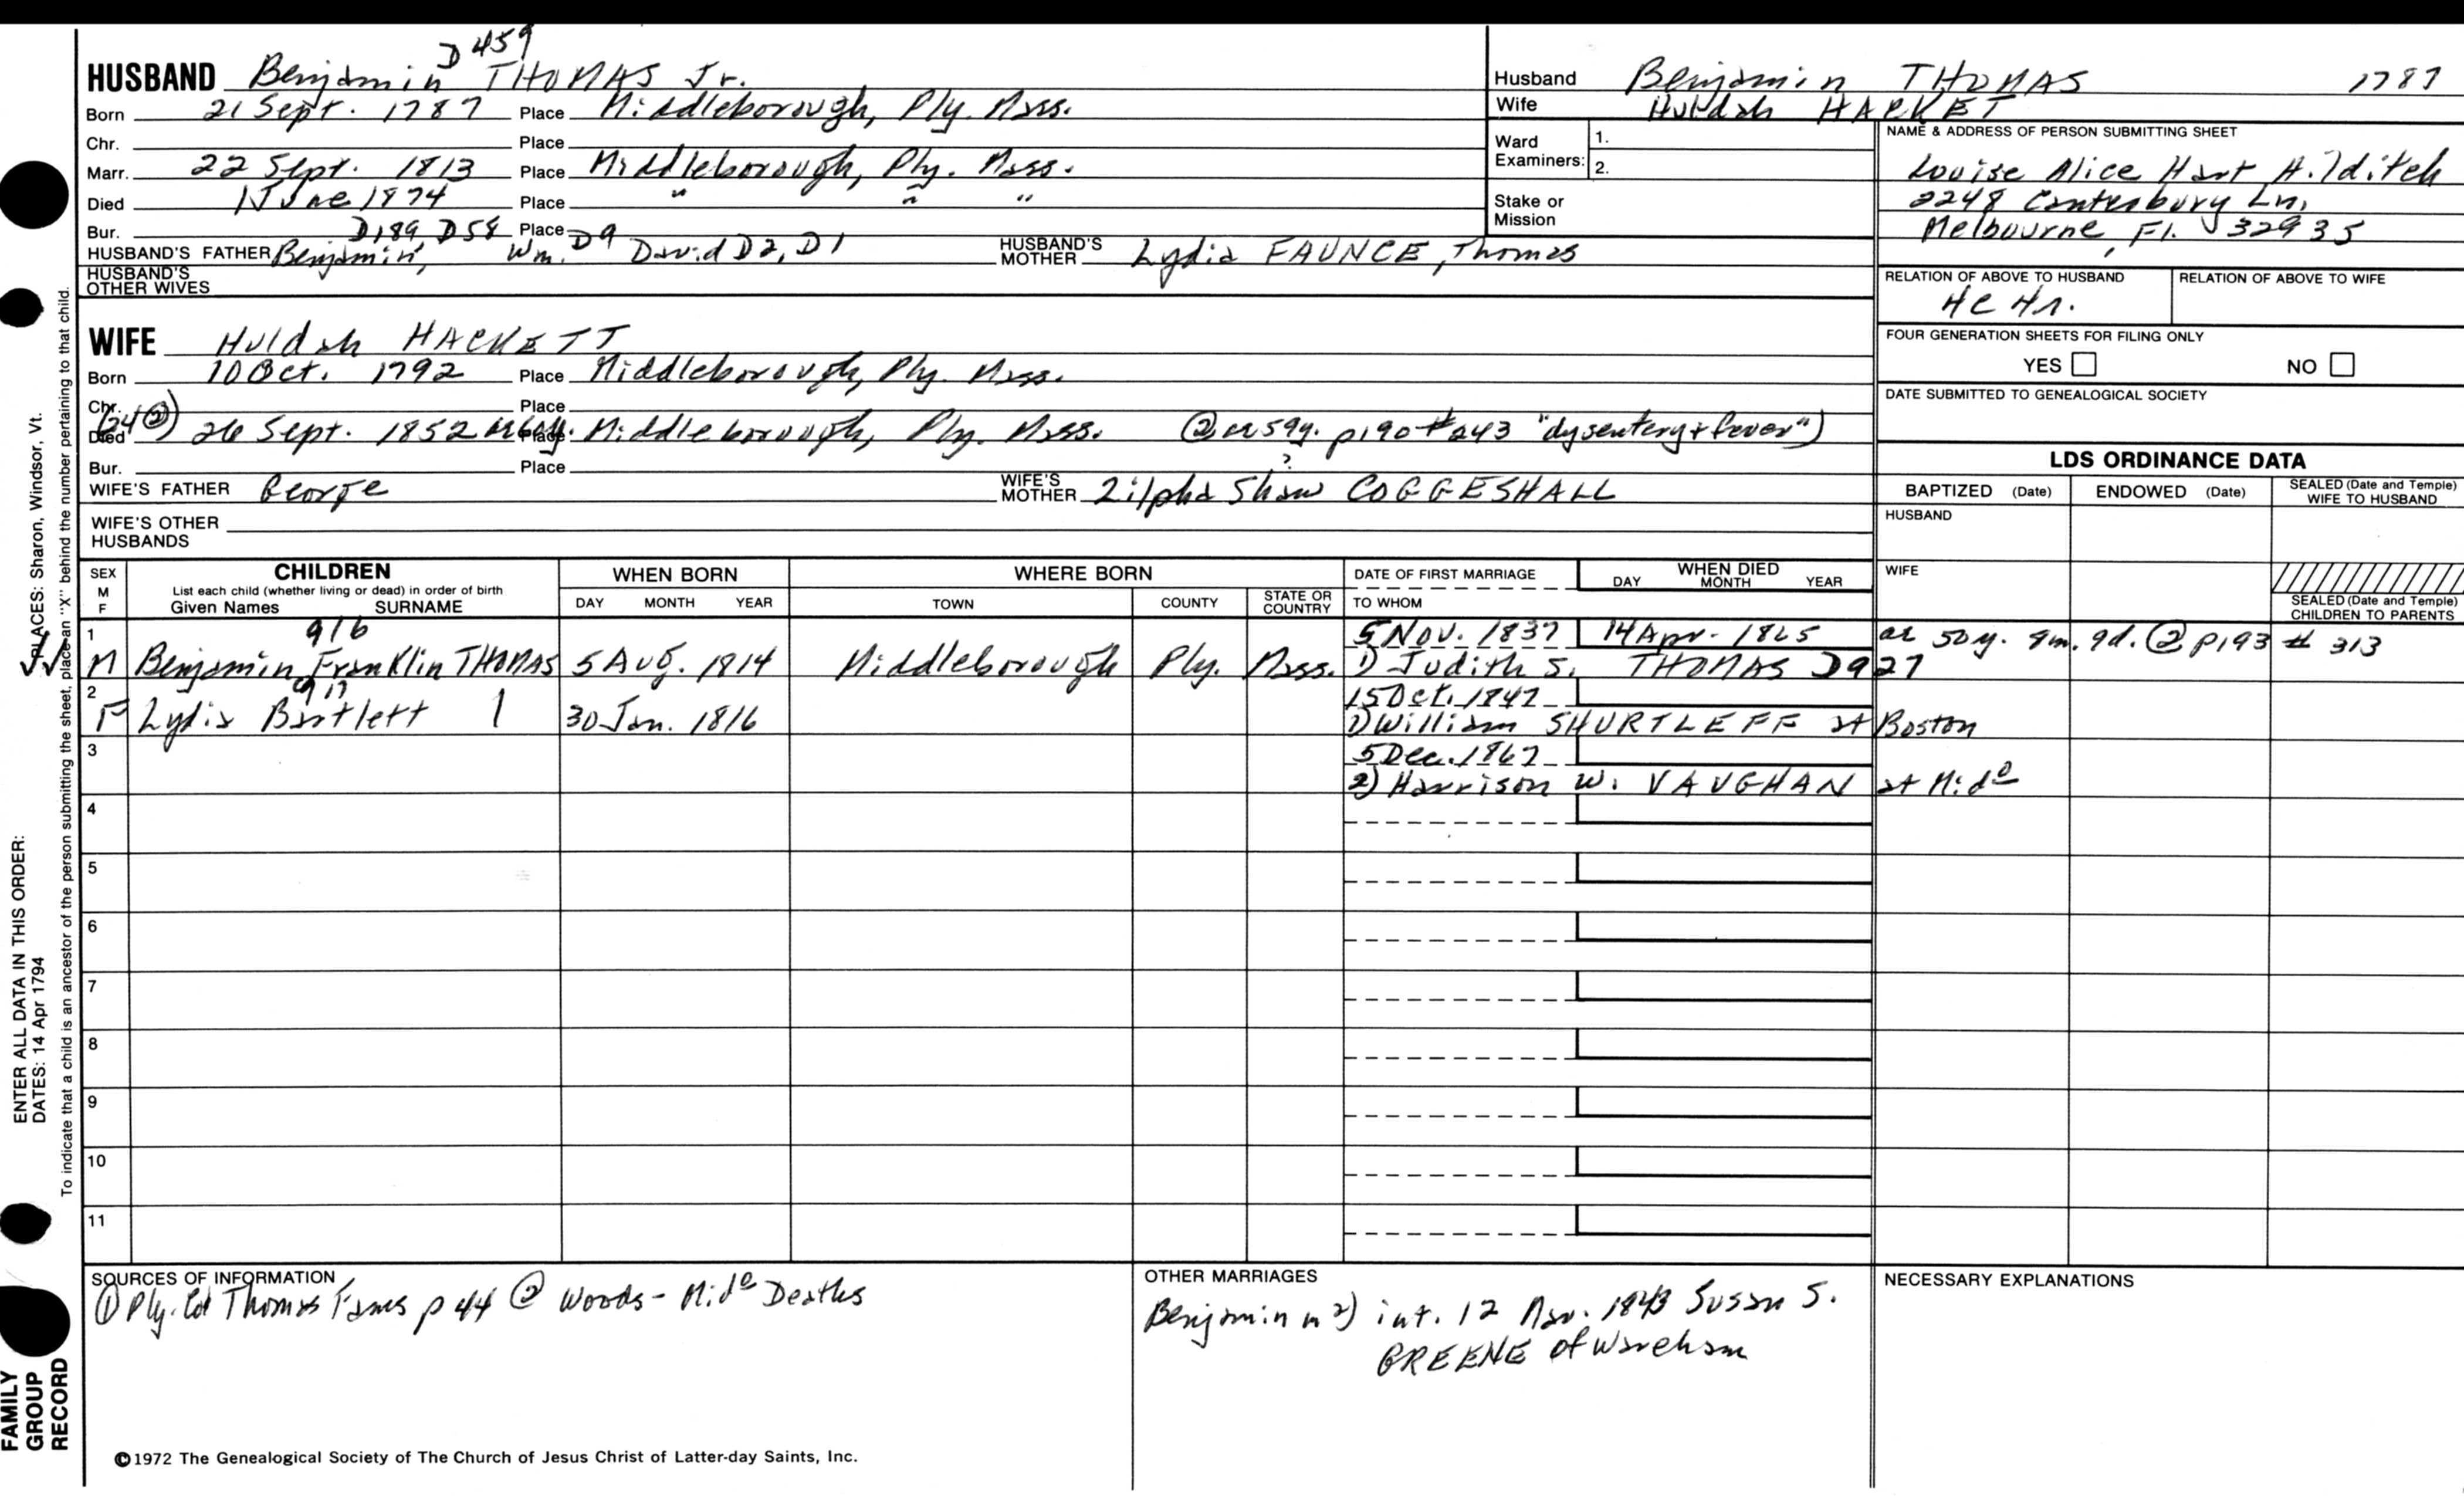 D 459
HUSBAND Benjamin THOMAS Jr.
Born 21 Sept. 1787 Place Middleborough, Ply. Mass.
Chr. Place
Marr. 22 Sept. 1813 Place Middleborough, Ply. Mass.
Died 1 June 1874 Place " " "
Bur. Place
D189, D58 D9
HUSBAND'S FATHER Benjamin, Wm. David D2, D1 HUSBAND'S MOTHER Lydia FAUNCE, Thomas
HUSBAND'S OTHER WIVES
Husband Benjamin THOMAS 1787
Wife Huldah HACKET
Ward Examiners: 1.
2.
Stake or Mission
NAME & ADDRESS OF PERSON SUBMITTING SHEET
Louise Alice Hart Hilditch
2248 Canterbury Ln,
Melbourne, Fl. 32935
RELATION OF ABOVE TO HUSBAND RELATION OF ABOVE TO WIFE
FOUR GENERATION SHEETS FOR FILING ONLY
YES NO
DATE SUBMITTED TO GENEALOGICAL SOCIETY
WIFE Huldah HACKETT
Born 10 Oct. 1792 Place Middleborough, Ply. Mass.
Chr. Place
(24②) Died 26 Sept. 1852 Place Middleborough, Ply. Mass. ② ae 59y. p190 #243 "dysentery + fever")
Bur. Place
WIFE'S FATHER George WIFE'S MOTHER Zilpha Shaw COGGESHALL ?
WIFE'S OTHER HUSBANDS
LDS ORDINANCE DATA
BAPTIZED (Date) ENDOWED (Date) SEALED (Date and Temple) WIFE TO HUSBAND
HUSBAND
WIFE
SEALED (Date and Temple) CHILDREN TO PARENTS
SEX M F
CHILDREN
List each child (whether living or dead) in order of birth
Given Names SURNAME
WHEN BORN
DAY MONTH YEAR
WHERE BORN
TOWN COUNTY STATE OR COUNTRY
DATE OF FIRST MARRIAGE
TO WHOM
WHEN DIED
DAY MONTH YEAR
1 916 5 Nov. 1837 14 Apr. 1865 ae 50y. 8m. 9d. ② p193 # 313
M Benjamin Franklin THOMAS 5 Aug. 1814 Middleborough Ply. Mass. 1) Judith S. THOMAS D927
2 917 15 Oct. 1847
F Lydia Bartlett 30 Jan. 1816 1) William SHURTLEFF at Boston
3 5 Dec. 1867
2) Harrison W. VAUGHAN at Mido
4
5
6
7
8
9
10
11
SOURCES OF INFORMATION
① Ply. Col Thomas Fams p 44 ② Woods - Mido Deaths
OTHER MARRIAGES
Benjamin m 2) int. 12 Nov. 1843 Susan S.
GREENE of Wareham
NECESSARY EXPLANATIONS
©1972 The Genealogical Society of The Church of Jesus Christ of Latter-day Saints, Inc.
FAMILY GROUP RECORD
ENTER ALL DATA IN THIS ORDER:
DATES: 14 Apr 1794
PLACES: Sharon, Windsor, Vt.
To indicate that a child is an ancestor of the person submitting the sheet, place an "X" behind the number pertaining to that child.